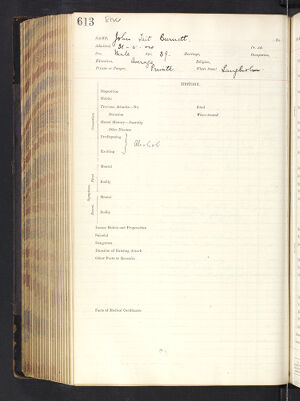 613
NAME, John Tait Burnett No.
Admitted, 31-5-00 Pr. Ad.
Sex, Male Age, 39 Marriage, Occupation,
Education, Average Religion,
Private or Pauper, Private Whence Sent? Langholm
HISTORY.
Disposition
Habits
Previous Attacks—No. Kind
Duration Where treated
Family History—Insanity
Other Disease
Predisposing
Exciting
Alcohol
Mental
Bodily
Mental
Bodily
Insane Habits and Propensities
Suicidal
Dangerous
Duration of Existing Attack
Other Facts or Remarks
Facts of Medical Certificates